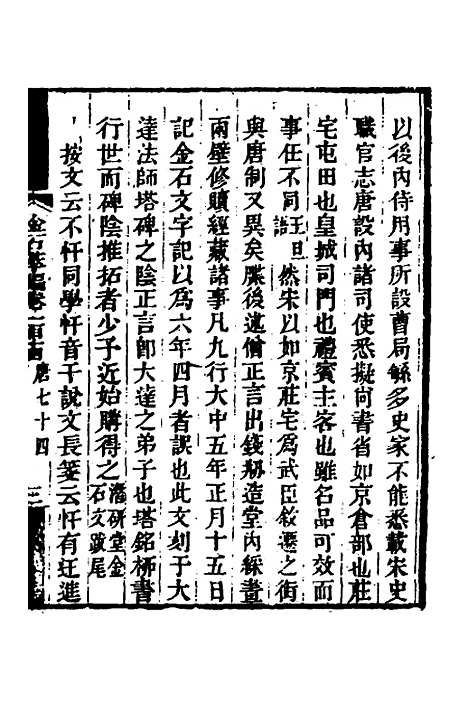 以後內侍用事所設曹局緐多史家不能悉載宋史
職官志唐設內諸司使悉擬尙書省如京倉部也莊
宅屯田也皇城司門也禮賓主客也雖名品可效而
事任不同王旦語然宋以如京莊宅爲武臣敘遷之街
與唐制又異矣牒後述僧正言出錢剏造堂內綵畫
兩壁修贖經藏諸事凡九行大中五年正月十五日
記金石文字記以爲六年四月者誤也此文刻于大
達法師塔碑之陰正言卽大達之弟子也塔銘柳書
行世而碑陰推拓者少予近始購得之潛硏堂金石文跋尾
按文云不忓同學忓音干說文長箋云忓有迋進
金石萃編卷一百十四 唐七十四
三